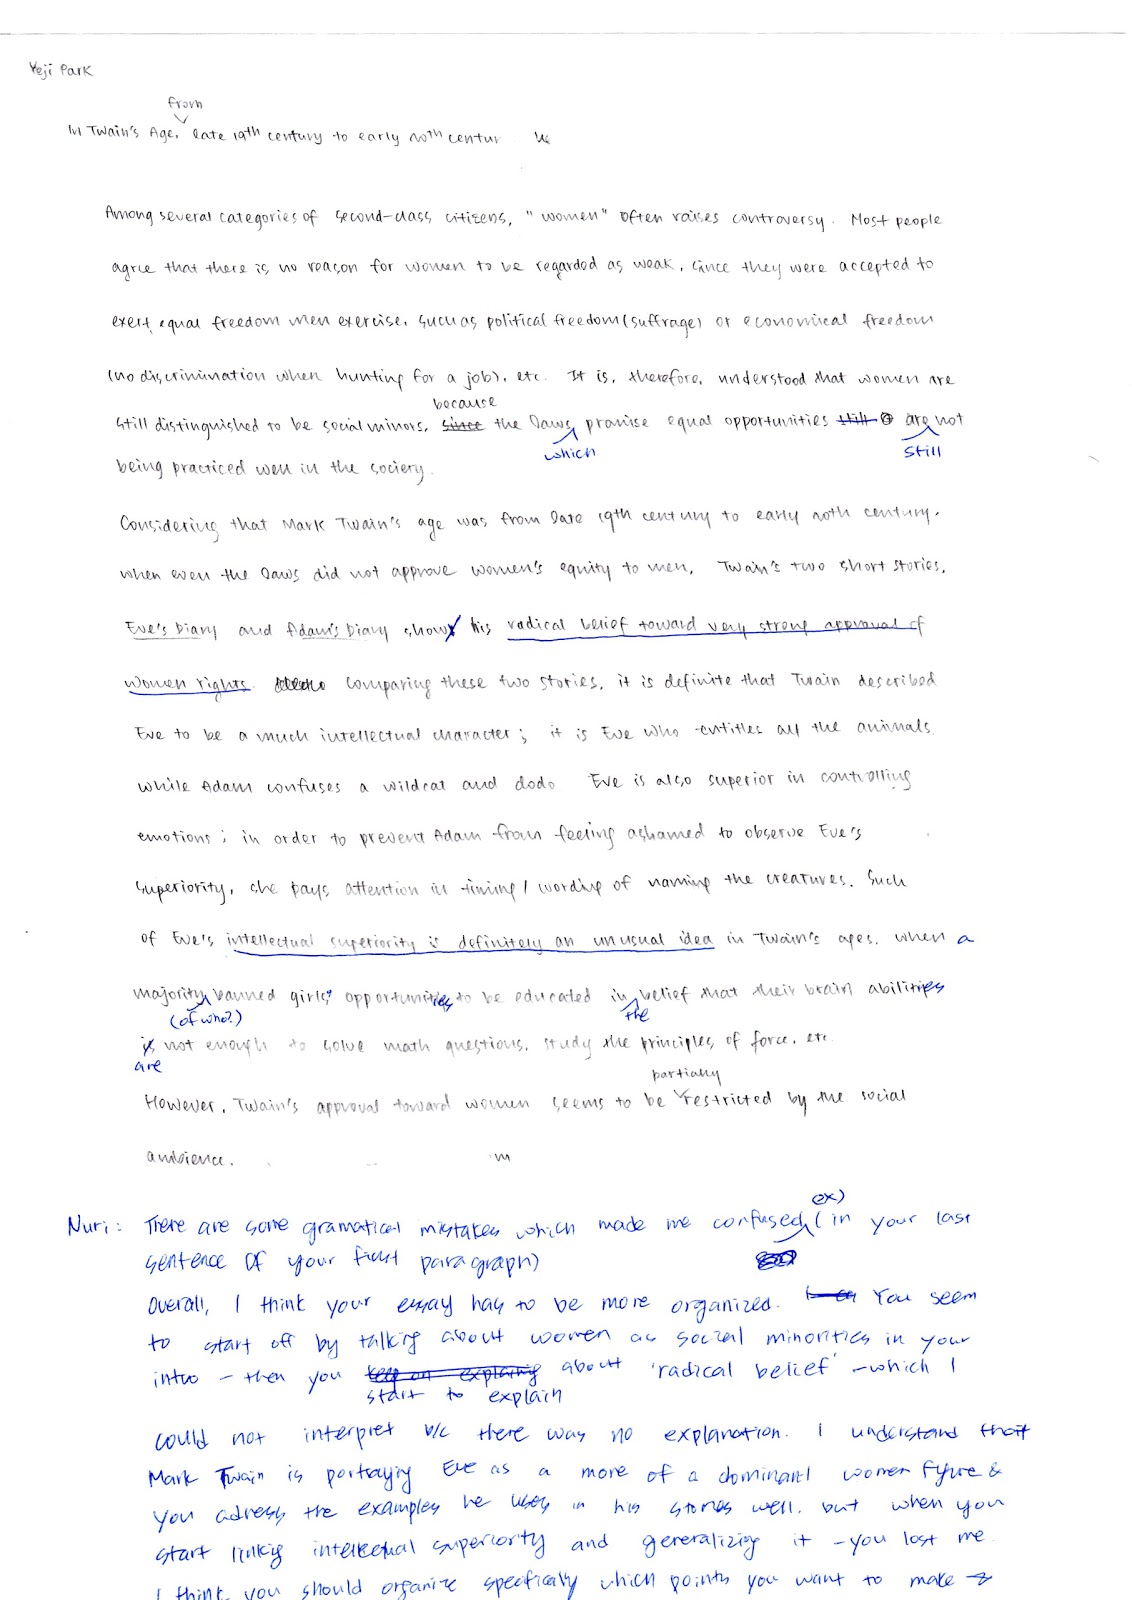 Yeji Park
from
In Twain's Age, late 19th century to early 20th centur
Among several categories of second-class citizens, "women" often raises controversy. Most people
agree that there is no reason for women to be regarded as weak, since they were accepted to
exert equal freedom men exercise, such as political freedom (suffrage) or economical freedom
(no discrimination when hunting for a job), etc. It is, therefore, understood that women are
because
still distinguished to be social minors, since the laws promise equal opportunities still are not
which still
being practiced well in the society.
Considering that Mark Twain's age was from late 19th century to early 20th century,
when even the laws did not approve women's equity to men, Twain's two short stories,
Eve's Diary and Adam's Diary shows his radical belief toward very strong approval of
women rights. Comparing these two stories, it is definite that Twain described
Eve to be a much intellectual character; it is Eve who entitles all the animals
while Adam confuses a wildcat and dodo. Eve is also superior in controlling
emotions; in order to prevent Adam from feeling ashamed to observe Eve's
superiority, she pays attention in timing/wording of naming the creatures. Such
of Eve's intellectual superiority is definitely an unusual idea in Twain's ages, when a
majority banned girls' opportunities to be educated in belief that their brain abilities
(of who?) the
is not enough to solve math questions, study the principles of force, etc.
are
partially
However, Twain's approval toward women seems to be restricted by the social
ambience.
ex)
Nuri: There are some gramatical mistakes which made me confused (in your last
sentence of your first paragraph)
Overall, I think your essay has to be more organized. You seem
to start off by talking about women as social minorities in your
intro - then you keep on explaining about 'radical belief' - which I
start to explain
could not interpret b/c there was no explanation. I understand that
Mark Twain is portraying Eve as a more of a dominant women figure &
you adress the examples he uses in his stories well. but when you
start linking intellectual superiority and generalizing it - you lost me.
I think you should organize specifically which points you want to make